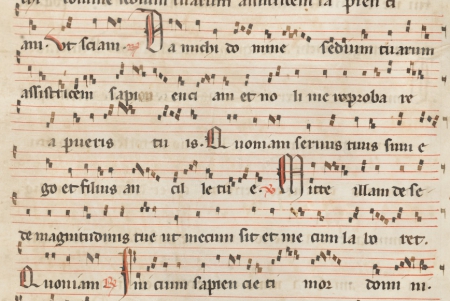 domine sedium tuarum assistricem sapien ti
am. Ut sciam. ℣ Da michi do mine sedium tuarum
assistricem sapien enci am et no li me reproba re
a pueris tu is. Quoniam servus tuus sum e
go et filius an cil le tu e. ℣ Mitte illam de se
de magnitudinis tue ut mecum sit et me cum la bo ret.
Quoniam ℟ In itium sapien cie ti mor domi ni.